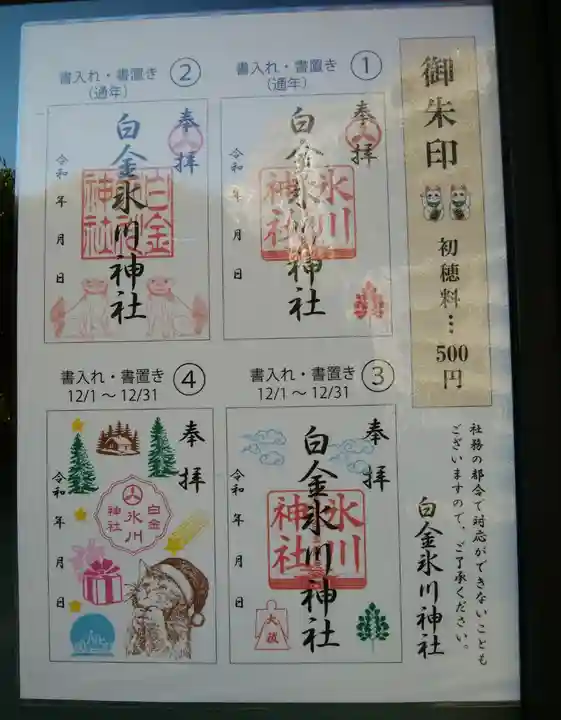 御朱印
初穂料…500円
①
書入れ・書置き
(通年)
奉拝
白金氷川神社
氷川神社
令和 年 月 日
②
書入れ・書置き
(通年)
奉拝
白金氷川神社
白金氷川神社
令和 年 月 日
③
書入れ・書置き
12/1 ～ 12/31
奉拝
白金氷川神社
氷川神社
令和 年 月 日
大祓
④
書入れ・書置き
12/1 ～ 12/31
奉拝
白金
氷川
神社
令和 年 月 日
社務の都合で対応ができないことも
ございますので、ご了承ください。
白金氷川神社